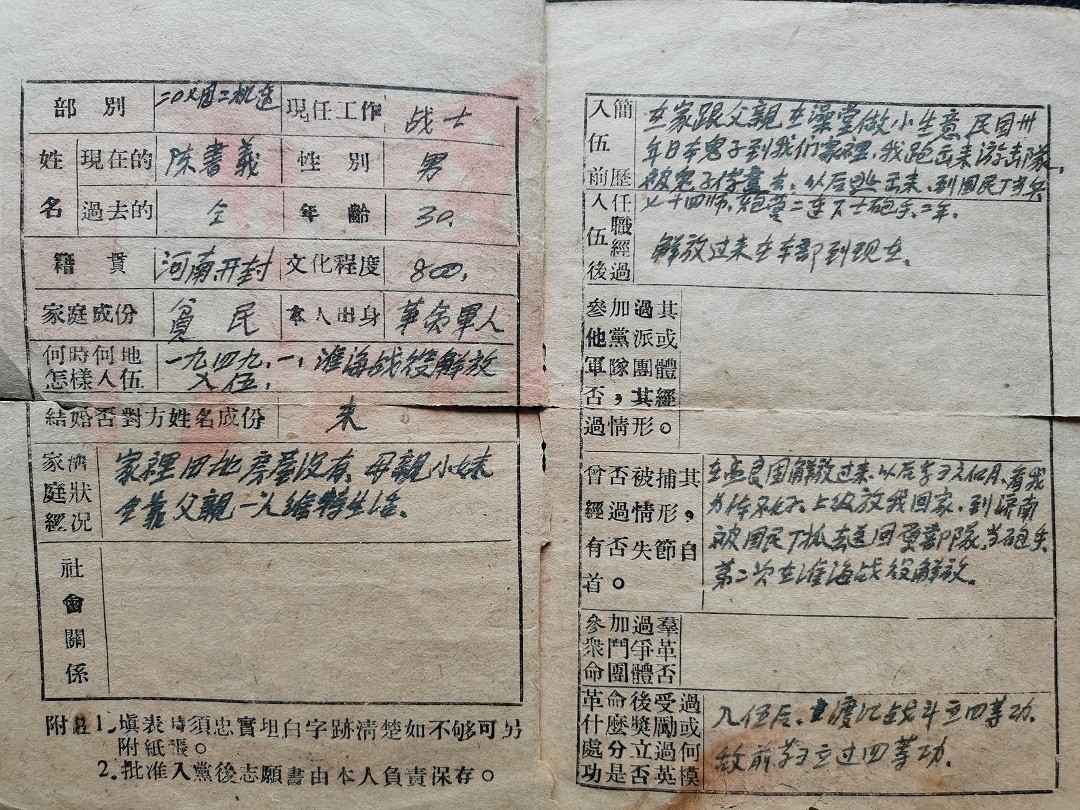 部別 二〇火团二机连 現任工作 战士
姓名 現在的 陈書義 性別 男
過去的 仝 年齡 30.
籍貫 河南.开封 文化程度 800,
家庭成份 貧民 本人出身 革命軍人
何時何地怎樣入伍 一九四九.一,淮海战役解放
入伍,
結婚否對方姓名成份 未
家庭經濟狀况 家裡田地房屋没有,母親小妹
全靠父親一人維持生活.
社會關係
附註1.填表時須忠實坦白字跡清楚如不够可另
附紙張。
2.批准入黨後志願書由本人負責保存。
入伍前簡歷 在家跟父親在澡堂做小生意,民国卅
年日本鬼子到我们家裡,我跑出来游击队,
被鬼子俘去,以后逃出来,到國民丁当兵
入伍後任職經過 七十四师,炮营二连下士砲手.二年.
解放过来在本部到现在.
參加過其
他黨派或
軍隊團體
否,其經
過情形。
曾否被捕其
經過情形,
有否失節自
首。
在孟良固解放过来.以后学习几个月.看我
力体不好.上级放我回家.到济南
被國民丁抓去送回原部隊.当砲手.
第二次在淮海战役解放.
參加過羣
衆鬥爭革
命團體否
革命後受過
什麼獎勵或
處分立過何
功是否英模
入伍后.渡江战斗立四等功.
敌前立过四等功.